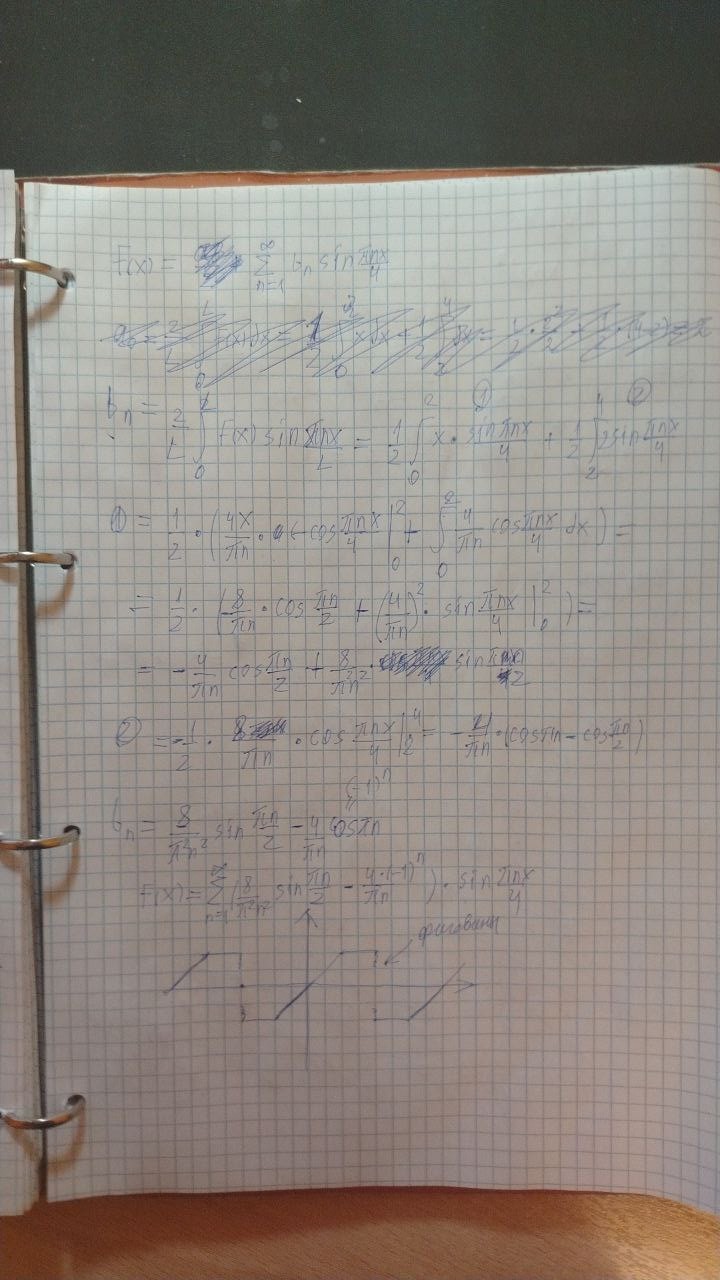 F(x) = ∑_{n=1}^{∞} b_n sin πnx/4
b_n = 2/L ∫_0^L F(x) sin πnx/L = 1/2 ∫_0^2 x · sin πnx/4 + 1/2 ∫_2^4 2 sin πnx/4
① = 1/2 · (4x/πn · (-cos πnx/4 |_0^2 + ∫_0^2 4/πn cos πnx/4 dx) =
= 1/2 · (-8/πn · cos πn/2 + (4/πn)^2 · sin πnx/4 |_0^2) =
= -4/πn cos πn/2 + 8/π²n² · sin πn/2
② = -1/2 · 8/πn · cos πnx/4 |_2^4 = -4/πn · (cos πn - cos πn/2)
(-1)^n
b_n = 8/π²n² sin πn/2 - 4/πn cos πn
F(x) = ∑_{n=1}^{∞} (8/π²n² sin πn/2 - 4·(-1)^n/πn) · sin πnx/4